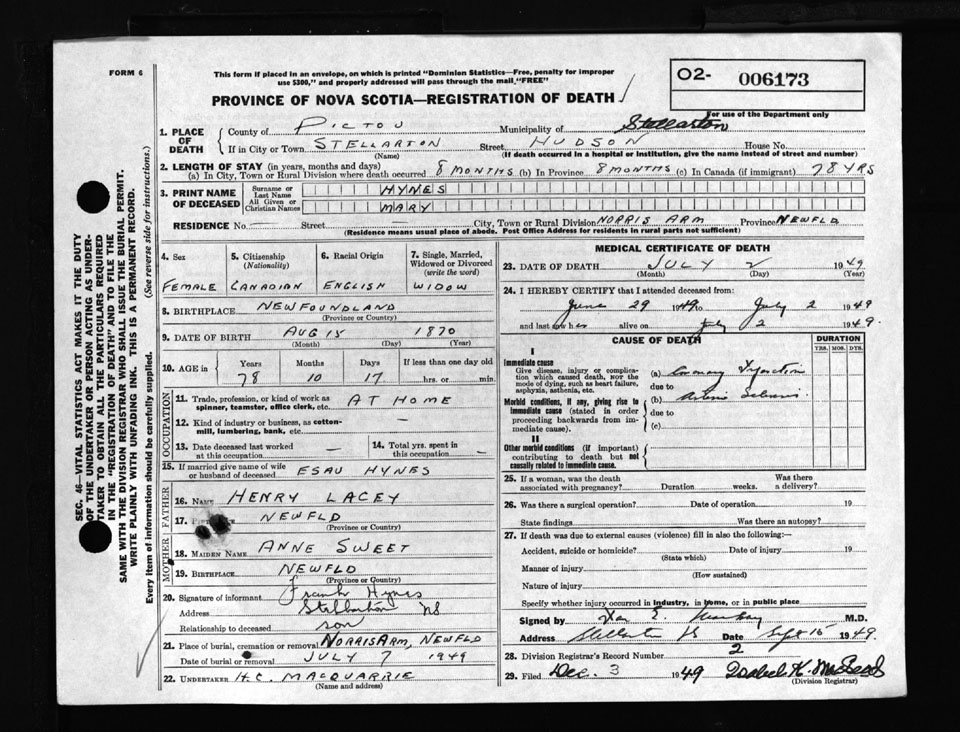 FORM 6
This form if placed in an envelope, on which is printed "Dominion Statistics—Free, penalty for improper
use $300," and properly addressed will pass through the mail "FREE"
O2- 006173
For use of the Department only
PROVINCE OF NOVA SCOTIA—REGISTRATION OF DEATH
1. PLACE OF DEATH
County of PICTOU Municipality of Stellarton
If in City or Town STELLARTON Street HUDSON House No.
(Name) (If death occurred in a hospital or institution, give the name instead of street and number)
2. LENGTH OF STAY (in years, months and days)
(a) In City, Town or Rural Division where death occurred 8 MONTHS (b) In Province 8 MONTHS (c) In Canada (if immigrant) 78 YRS
3. PRINT NAME OF DECEASED
Surname or Last Name HYNES
All Given or Christian Names MARY
RESIDENCE No. Street City, Town or Rural Division NORRIS ARM Province NEWFLD
(Residence means usual place of abode. Post Office Address for residents in rural parts not sufficient)
4. Sex FEMALE
5. Citizenship (Nationality) CANADIAN
6. Racial Origin ENGLISH
7. Single, Married, Widowed or Divorced (write the word) WIDOW
8. BIRTHPLACE NEWFOUNDLAND
(Province or Country)
9. DATE OF BIRTH AUG 15 1870
(Month) (Day) (Year)
10. AGE in Years Months Days If less than one day old
78 10 17 hrs. or min.
OCCUPATION
11. Trade, profession, or kind of work as spinner, teamster, office clerk, etc. AT HOME
12. Kind of industry or business, as cotton-mill, lumbering, bank, etc. —
13. Date deceased last worked at this occupation
14. Total yrs. spent in this occupation —
15. If married give name of wife or husband of deceased ESAU HYNES
FATHER
16. NAME HENRY LACEY
17. NEWFLD
(Province or Country)
MOTHER
18. MAIDEN NAME ANNE SWEET
19. BIRTHPLACE NEWFLD
(Province or Country)
20. Signature of informant Frank Hynes
Address Stellarton NS
Relationship to deceased son
21. Place of burial, cremation or removal NORRIS ARM, NEWFLD
Date of burial or removal JULY 7 1949
22. UNDERTAKER H.C. MACQUARRIE
(Name and address)
MEDICAL CERTIFICATE OF DEATH
23. DATE OF DEATH JULY 2 1949
(Month) (Day) (Year)
24. I HEREBY CERTIFY that I attended deceased from:
June 29 1949 to July 2 1949
and last saw her alive on July 2 1949.
CAUSE OF DEATH
DURATION
YRS. MOS. DYS.
I
Immediate cause
Give disease, injury or complication which caused death, NOT the mode of dying, such as heart failure, asphyxia, asthenia, etc.
(a) Coronary
due to
Morbid conditions, if any, giving rise to immediate cause (stated in order proceeding backwards from immediate cause).
(b)
due to
(c)
II
Other morbid conditions (if important) contributing to death but not causally related to immediate cause.
25. If a woman, was the death associated with pregnancy? Duration weeks. Was there a delivery?
26. Was there a surgical operation? Date of operation 19
State findings Was there an autopsy?
27. If death was due to external causes (violence) fill in also the following:—
Accident, suicide or homicide? Date of injury 19
(State which)
Manner of injury
(How sustained)
Nature of injury
Specify whether injury occurred in industry, in home, or in public place
Signed by M.D.
Address Stellarton NS Date Sept 15 1949.
28. Division Registrar's Record Number 2
29. Filed Dec. 3 1949 Isabel K. MacLeod
(Division Registrar)
SEC. 46—VITAL STATISTICS ACT MAKES IT THE DUTY
OF THE UNDERTAKER OR PERSON ACTING AS UNDER-
TAKER TO OBTAIN ALL THE PARTICULARS REQUIRED
IN THE "REGISTRATION OF DEATH" AND TO FILE THE
SAME WITH THE DIVISION REGISTRAR WHO SHALL ISSUE THE BURIAL PERMIT.
WRITE PLAINLY WITH UNFADING INK. THIS IS A PERMANENT RECORD.
Every item of information should be carefully supplied. (See reverse side for instructions.)